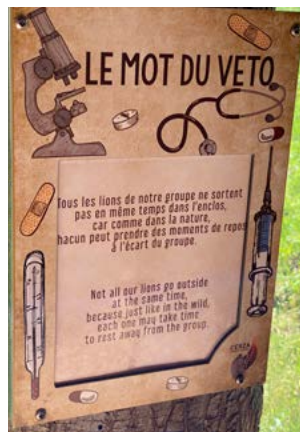 LE MOT DU VETO
Tous les lions de notre groupe ne sortent
pas en même temps dans l'enclos,
car comme dans la nature,
chacun peut prendre des moments de repos
à l'écart du groupe.
Not all our lions go outside
at the same time,
because just like in the wild,
each one may take time
to rest away from the group.
CERZA